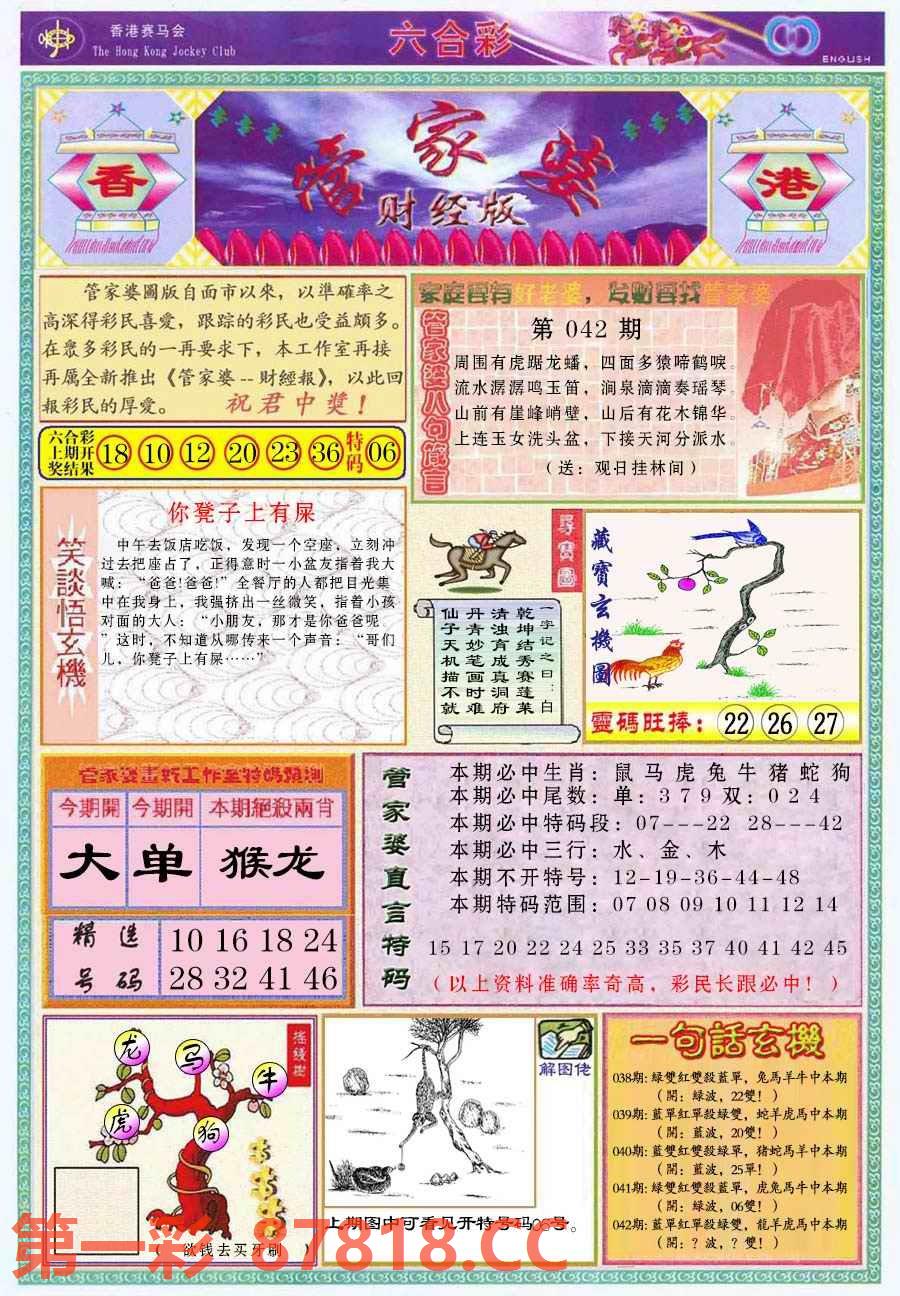 香港赛马会
The Hong Kong Jockey Club
六合彩
ENGLISH
香
管家婆
财经版
港
管家婆圖版自面市以來，以準確率之
高深得彩民喜愛，跟踪的彩民也受益頗多。
在眾多彩民的一再要求下，本工作室再接
再厲全新推出《管家婆--財經報》，以此回
報彩民的厚愛。 祝君中獎！
六合彩
上期开
奖结果
18 10 12 20 23 36 特码 06
好老婆，
管家婆
管家婆八句箴言
第 042 期
周围有虎踞龙蟠，四面多猿啼鹤唳。
流水潺潺鸣玉笛，涧泉滴滴奏瑶琴。
山前有崖峰峭壁，山后有花木锦华。
上连玉女洗头盆，下接天河分派水。
（送：观日挂林间）
笑談悟玄機
你凳子上有屎
中午去饭店吃饭，发现一个空座，立刻冲
过去把座占了，正得意时一小盆友指着我大
喊：“爸爸！爸爸！”全餐厅的人都把目光集
中在我身上，我强挤出一丝微笑，指着小孩
对面的大人：“小朋友，那才是你爸爸呢
”这时，不知道从哪传来一个声音：“哥们
儿，你凳子上有屎……”
尋寶圖
一字记之曰：白
乾坤结秀赛蓬莱
清浊育成真洞府
丹青妙笔画时难
仙子天机描不就
藏寶玄機圖
靈碼旺捧： 22 26 27
今期開 今期開 本期絕殺兩肖
大 单 猴龙
精选
号码
10 16 18 24
28 32 41 46
管家婆直言特码
本期必中生肖：鼠 马 虎 兔 牛 猪 蛇 狗
本期必中尾数：单：3 7 9 双：0 2 4
本期必中特码段：07---22 28---42
本期必中三行：水、金、木
本期不开特号：12-19-36-44-48
本期特码范围：07 08 09 10 11 12 14
15 17 20 22 24 25 33 35 37 40 41 42 45
（以上资料准确率奇高，彩民长跟必中！）
摇錢樹
龙
马
牛
虎
狗
（ 欲钱去买牙刷 ）
解图佬
上期图中可看见开特号码06号。
一句話玄機
038期: 绿雙紅雙殺藍單，兔馬羊牛中本期
（開：绿波，22雙！）
039期: 藍單紅單殺绿雙，蛇羊虎馬中本期
（開：藍波，20雙！）
040期: 藍雙紅雙殺绿單，猪蛇馬羊中本期
（開：藍波，25單！）
041期: 绿雙紅雙殺藍單，虎兔馬牛中本期
（開：绿波，06雙！）
042期: 藍單紅單殺绿雙，龍羊虎馬中本期
（開：？波，？雙！）
第一彩 87818.CC